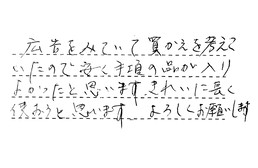 広告をみていて買かえを考えて
いたので安く手頃の品が入り
よかったと思います きれいに長く
使おうと思います よろしくお願いします